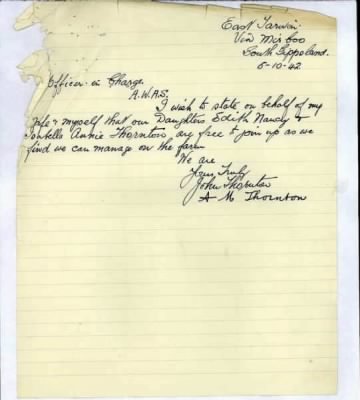 East Tarwin
Via Mirboo
South Gippsland.
5-10-42
Officer in Charge.
A.W.A.S.
I wish to state on behalf of my
wife & myself that our Daughters Edith Nancy &
Isabella Annie Thornton, are free to join up as we
find we can manage on the farm
We are
Yours Truly
John Thornton
A M Thornton